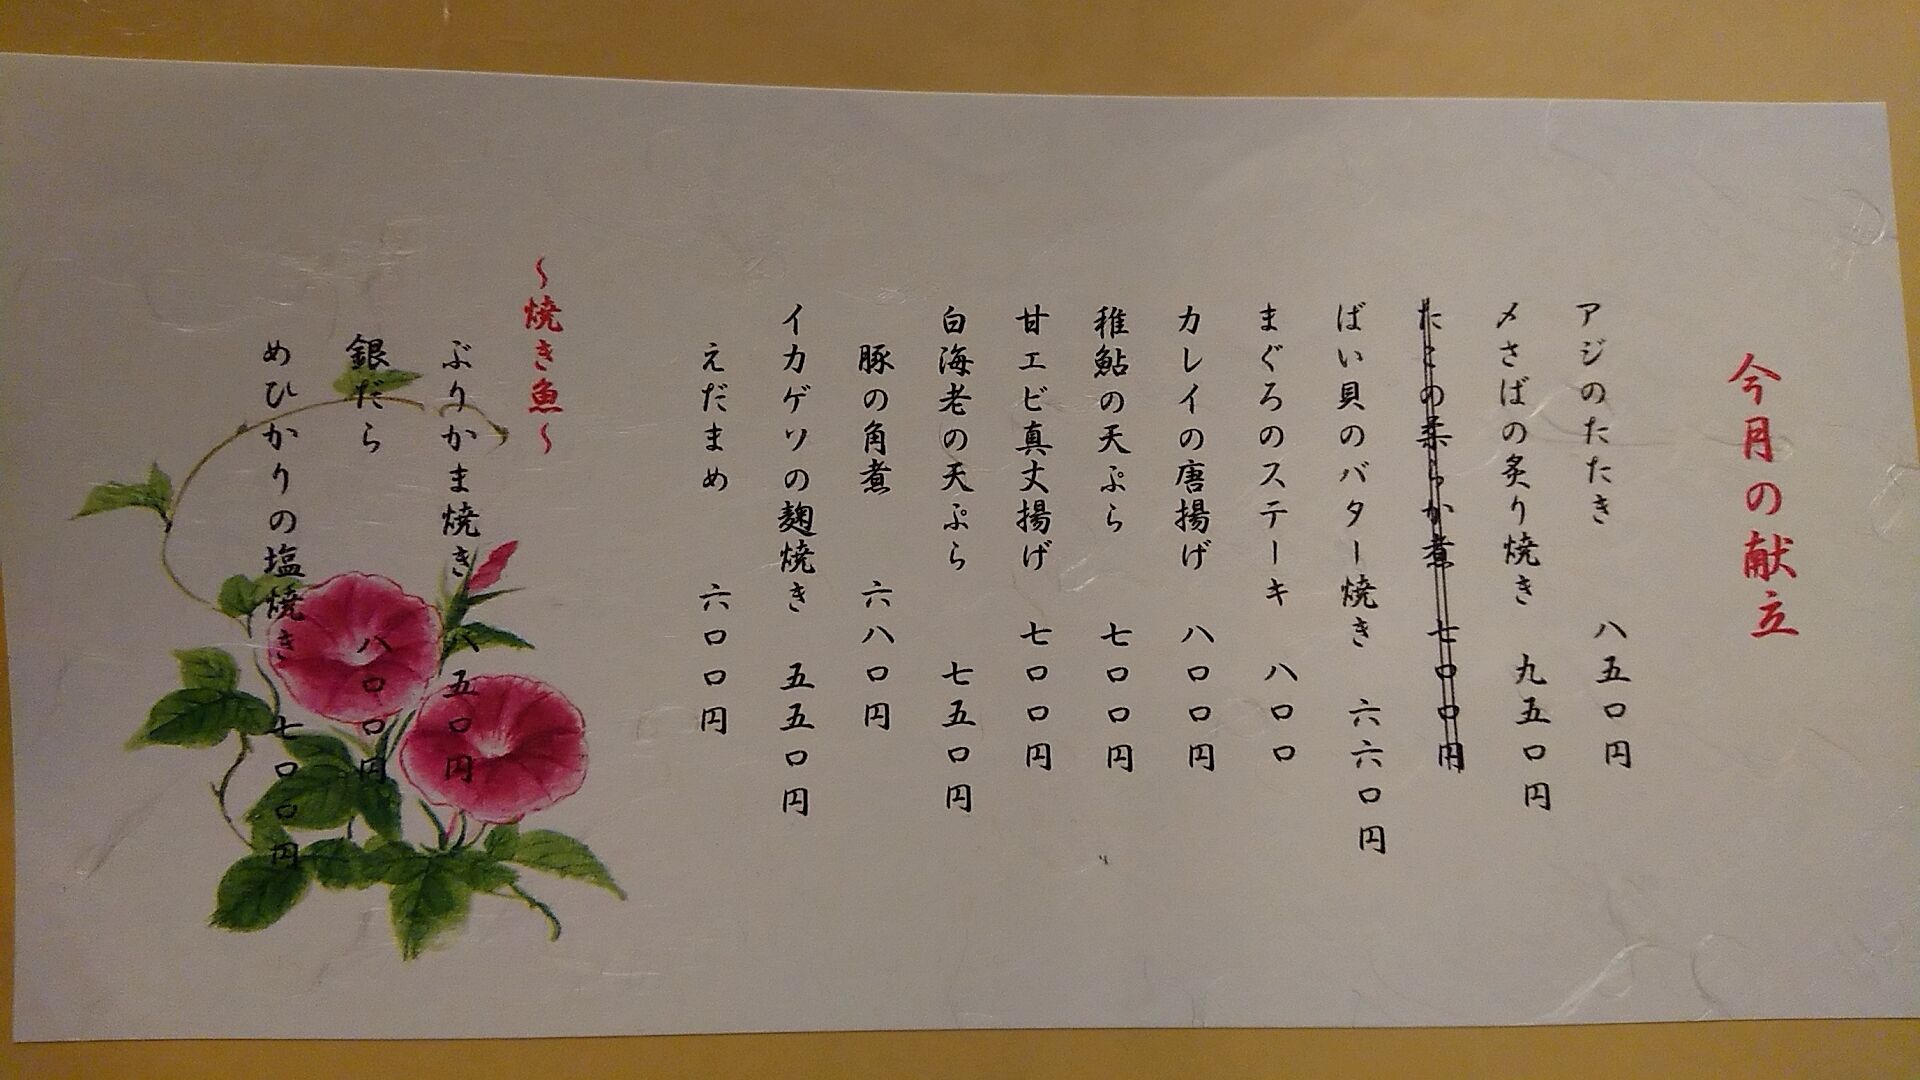 今月の献立
アジのたたき 八五〇円
〆さばの炙り焼き 九五〇円
たこの柔らか煮 七〇〇円
ばい貝のバター焼き 六六〇円
まぐろのステーキ 八〇〇
カレイの唐揚げ 八〇〇円
稚鮎の天ぷら 七〇〇円
甘エビ真丈揚げ 七〇〇円
白海老の天ぷら 七五〇円
豚の角煮 六八〇円
イカゲソの麹焼き 五五〇円
えだまめ 六〇〇円
～焼き魚～
ぶりかま焼き 八五〇円
銀だら 八〇〇円
めひかりの塩焼き 七〇〇円